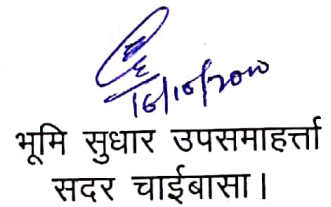 16/10/2010
भूमि सुधार उपसमाहर्त्ता
सदर चाईबासा।